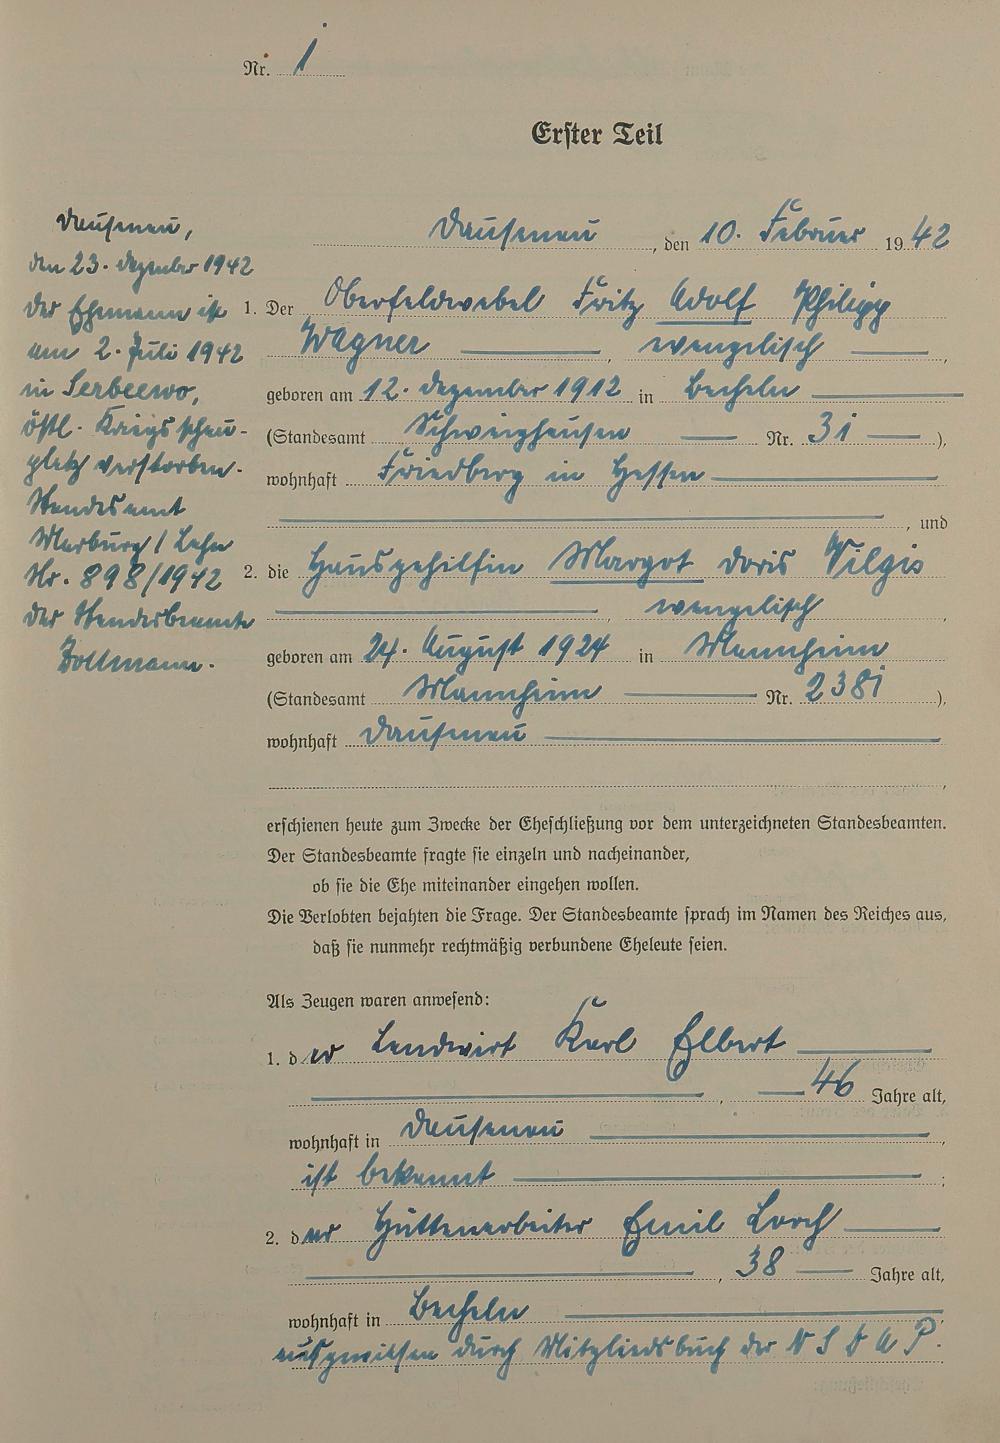 Nr. 1
Erster Teil
Dausenau, den 10. Februar 1942
1. Der Oberfeldwebel Fritz Adolf Philipp
Wagner, evangelisch,
geboren am 12. Dezember 1912 in Becheln
(Standesamt Schweighausen Nr. 31),
wohnhaft Friedberg in Hessen
, und
2. die Hausgehilfin Margot Doris Vilgis
, evangelisch,
geboren am 24. August 1924 in Mannheim
(Standesamt Mannheim Nr. 2381),
wohnhaft Dausenau
,
Dausenau,
den 23. Dezember 1942
Der Ehemann ist
am 2. Juli 1942
in
östl. Kriegsschau-
platz verstorben.
Standesamt
Marburg/Lahn
Nr. 898/1942
Der Standesbeamte
erschienen heute zum Zwecke der Eheschließung vor dem unterzeichneten Standesbeamten.
Der Standesbeamte fragte sie einzeln und nacheinander,
ob sie die Ehe miteinander eingehen wollen.
Die Verlobten bejahten die Frage. Der Standesbeamte sprach im Namen des Reiches aus,
daß sie nunmehr rechtmäßig verbundene Eheleute seien.
Als Zeugen waren anwesend:
1. der Landwirt Karl Elbert
, 46 Jahre alt,
wohnhaft in Dausenau,
ist bekannt;
2. der Hüttenarbeiter Emil Lorch
, 38 Jahre alt,
wohnhaft in Becheln,
ausgewiesen durch Mitgliedsbuch der N S D A P.